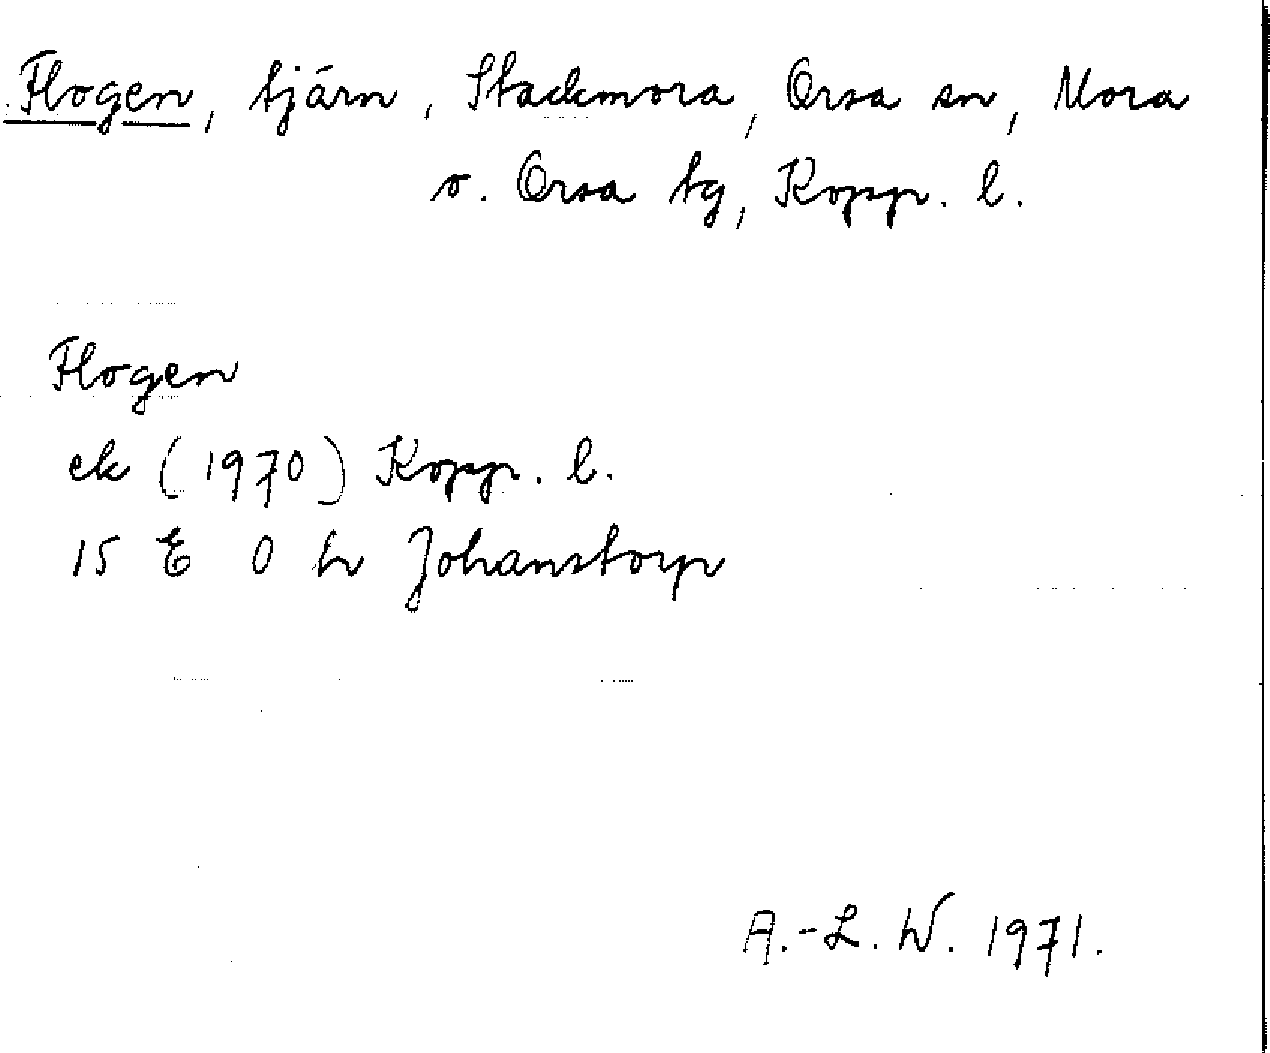 Flogen, tjärn, Stackmora, Orsa sn, Mora
o. Orsa tg, Kopp. l.
Flogen
ek (1970) Kopp. l.
15 E 0 h Johanstorp
A.-L. W. 1971.